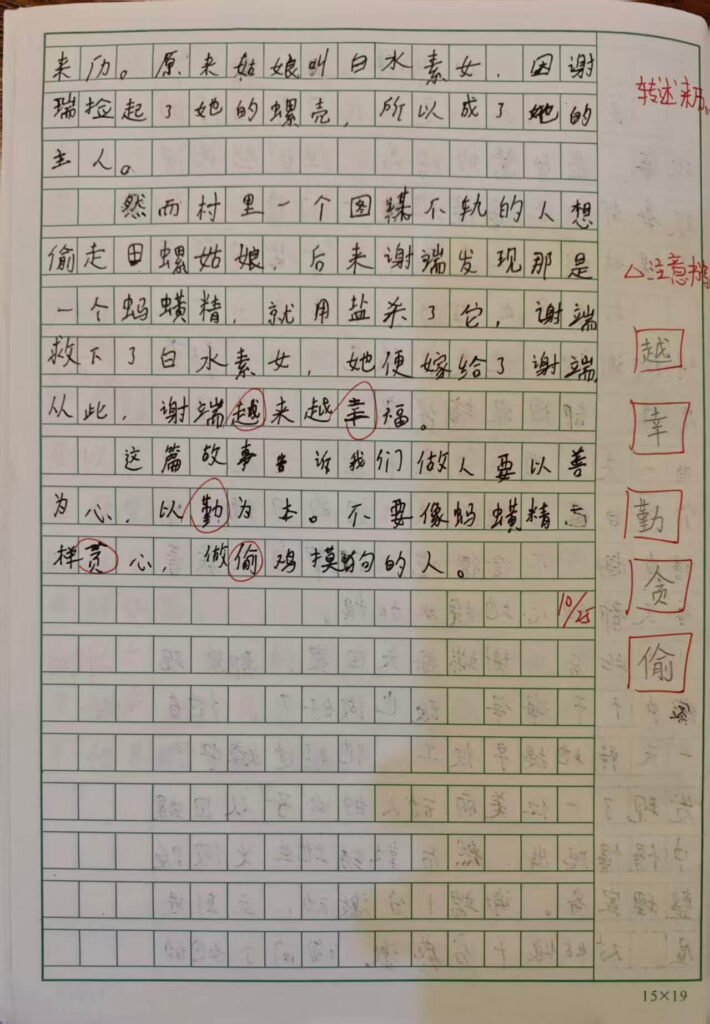 来历。原来姑娘叫白水素女，因谢
瑞捡起了她的螺壳，所以成了她的
主人。
然而村里一个图谋不轨的人想
偷走田螺姑娘，后来谢端发现那是
一个蚂蟥精，就用盐杀了它，谢端
救下了白水素女，她便嫁给了谢端，
从此，谢端越来越幸福。
这篇故事告诉我们做人要以善
为心，以勤为本。不要像蚂蟥精一
样贪心，做偷鸡摸狗的人。
转述来历。
△注意
越
幸
勤
贪
偷
10/25
15×19